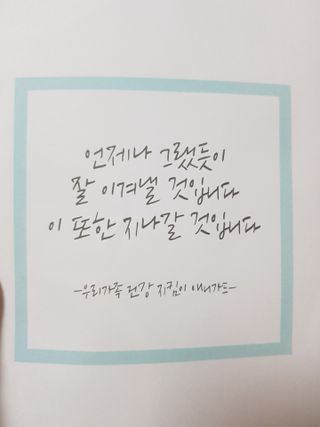 언제나 그랬듯이
잘 이겨낼 것입니다
이 또한 지나갈 것입니다
-우리가족 건강 지킴이 애니가드-